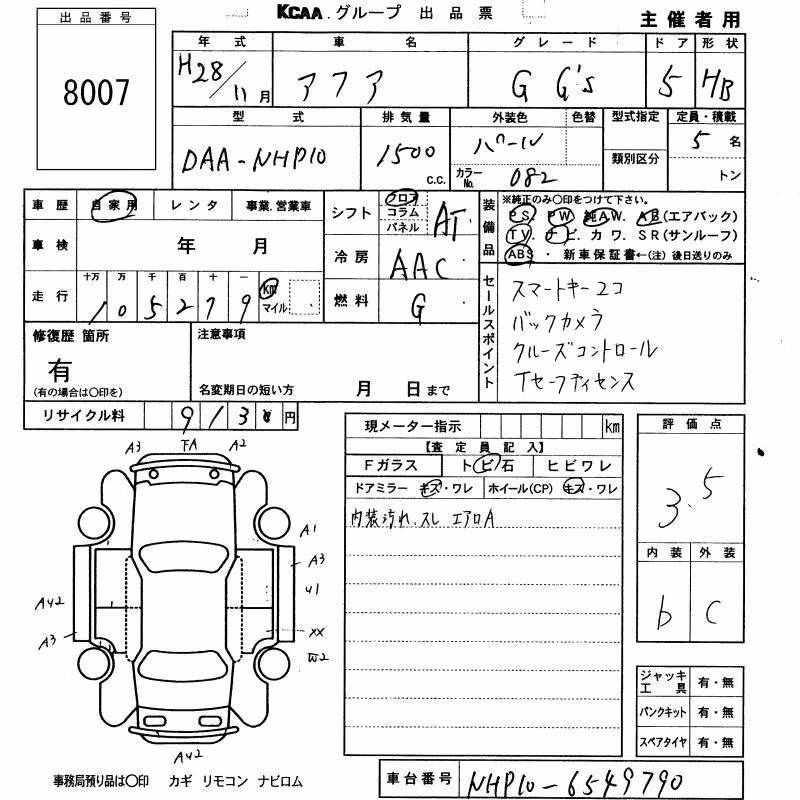 出品番号
8007
KCAA.グループ 出品票
主催者用
年式 車名 グレード ドア 形状
H28/11月 アクア G G's 5 HB
型式 排気量 外装色 色替 型式指定 定員・積載
DAA-NHP10 1500 c.c. パール 5名
カラーNo. 082 類別区分 トン
車歴 自家用 レンタ 事業.営業車
車検 年 月
走行 十万 万 千 百 十 一
105279 km マイル
シフト フロア コラム パネル AT
冷房 AAC
燃料 G
装備品
※純正のみ〇印をつけて下さい。
PS. PW. 純AW. AB(エアバック)
TV. ナビ. カワ. SR(サンルーフ)
ABS ・ 新車保証書←(注)後日送りのみ
セールスポイント
スマートキー2コ
バックカメラ
クルーズコントロール
Tセーフティセンス
修復歴 箇所
有
(有の場合は〇印を)
注意事項
名変期日の短い方 月 日まで
リサイクル料 913 円
現メーター指示 km
【査定員記入】
Fガラス トビ石 ヒビワレ
ドアミラー キズ・ワレ ホイール(CP) キズ・ワレ
内装汚れ.スレ エアロA
評価点
3.5
内装 外装
b C
A3 下A A2
A1
A3
U1
XX
W2
AU2
A3
AU2
ジャッキ工具 有・無
パンクキット 有・無
スペアタイヤ 有・無
事務局預り品は〇印 カギ リモコン ナビロム
車台番号 NHP10-6549790